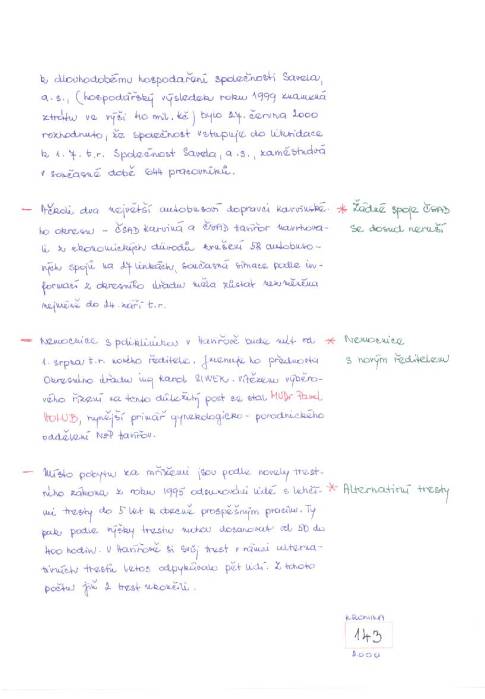 k dlouhodobému hospodaření společnosti Savela,
a.s., (hospodářský výsledek roku 1999 znamená
ztrátu ve výši 40 mil. kč) bylo 27. června 2000
rozhodnuto, že společnost vstupuje do likvidace
k 1. 7. t.r. Společnost Savela, a.s., zaměstnává
v současné době 644 pracovníků.
- Ačkoli dva největší autobusoví dopravci karvinské-
ho okresu - ČSAD Karviná a ČSAD Havířov navrhova-
li z ekonomických důvodů zrušení 58 autobuso-
vých spojů na 17 linkách, současná situace podle in-
formací z okresního úřadu může zůstat nezměněna
nejméně do 24. září t.r.
* Žádné spoje ČSAD
se dosud neruší
- Nemocnice s poliklinikou v Havířově bude mít od
1. srpna t.r. nového ředitele. Jmenuje ho přednosta
Okresního úřadu ing. Karol SIWEK. Vítězem výběro-
vého řízení na tento důležitý post se stal MUDr. Pavel
HOLUB, nynější primář gynekologicko-porodnického
oddělení NsP Havířov.
* Nemocnice
s novým ředitelem
- Místo pobytu za mřížemi jsou podle novely trest-
ního zákona z roku 1995 odsuzováni lidé s lehčí-
mi tresty do 5 let k obecně prospěšným pracím. Ty
pak podle výšky trestu mohou dosahovat od 50 do
400 hodin. V Havířově si svůj trest v rámci alterna-
tivních trestů letos odpykávalo pět lidí. Z tohoto
počtu již 2 trest ukončili.
* Alternativní tresty
KRONIKA
143
2000